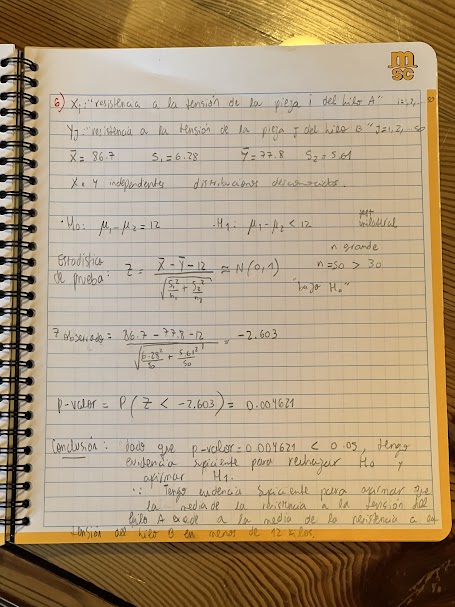 m
sc
6) Xi: "resistencia a la tensión de la pieza i del hilo A" i=1,2,.. 50
Yj: "resistencia a la tensión de la pieza j del hilo B" j=1,2,.. 50
X̄ = 86.7 S₁ = 6.28 Ȳ = 77.8 S₂ = 5.61
X e Y independientes distribuciones desconocidas.
· H₀: μ₁-μ₂ = 12 · H₁: μ₁-μ₂ < 12 unilateral
Estadístico de prueba: Z = (X̄ - Ȳ - 12) / √(S₁²/n₁ + S₂²/n₂) ≈ N(0,1)
n grande
n=50 > 30
"bajo H₀"
Z observado = (86.7 - 77.8 - 12) / √(6.28²/50 + 5.61²/50) = -2.603
p-valor = P(Z < -2.603) = 0.004621
Conclusión: dado que p-valor = 0.004621 < 0.05, tengo
evidencia suficiente para rechazar H₀ y
afirmar H₁.
∴ Tengo evidencia suficiente para afirmar que
la media de la resistencia a la tensión del
hilo A excede a la media de la resistencia a la
tensión del hilo B en menos de 12 kilos.